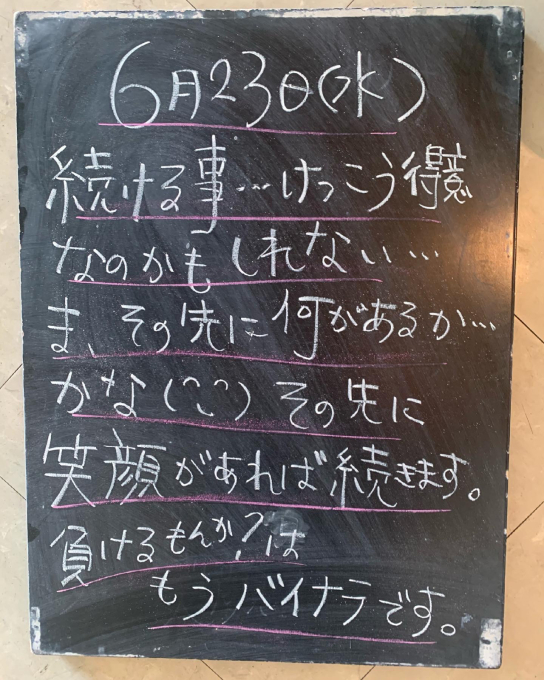 6月23日(水)
続ける事…けっこう得意
なのかもしれない…
ま、その先に何があるか…
かな(^-^) その先に
笑顔があれば続きます。
負けるもんか?は
もうバイナラです。